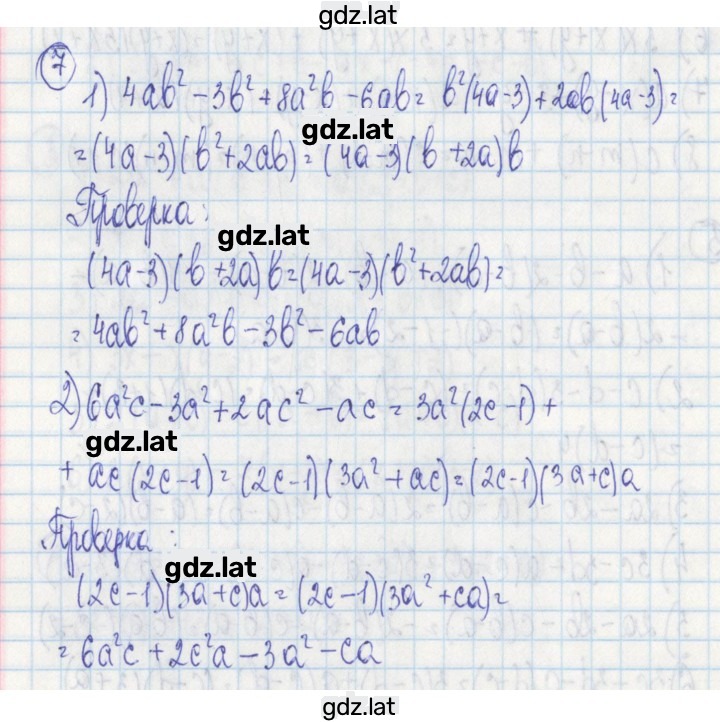 gdz.lat
7
1) 4ab² - 3b² + 8a²b - 6ab = b²(4a-3) + 2ab(4a-3) =
gdz.lat
= (4a-3)(b²+2ab) = (4a-3)(b+2a)b
Проверка:
gdz.lat
(4a-3)(b+2a)b = (4a-3)(b²+2ab) =
= 4ab² + 8a²b - 3b² - 6ab
2) 6a²c - 3a² + 2ac² - ac = 3a²(2c-1) +
gdz.lat
+ ac(2c-1) = (2c-1)(3a²+ac) = (2c-1)(3a+c)a
Проверка:
gdz.lat
(2c-1)(3a+c)a = (2c-1)(3a²+ca) =
= 6a²c + 2c²a - 3a² - ca
gdz.lat